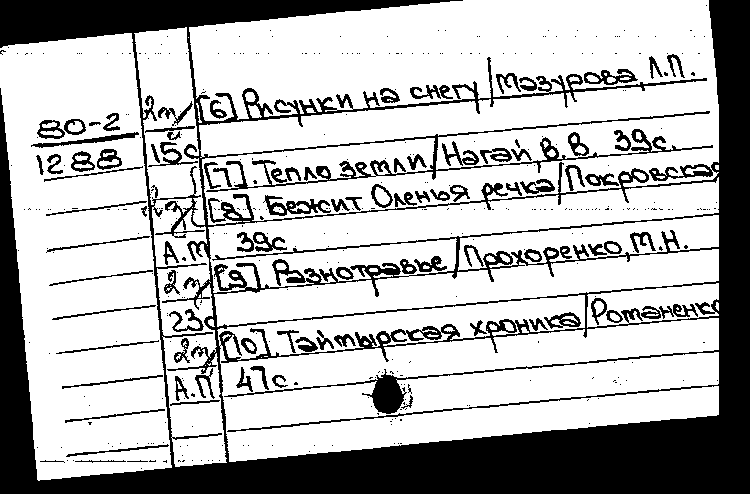 2т/ [6] Рисунки на снегу / Мазурова, Л.П.
80-2
1288 15с.
[7]. Тепло земли / Нагай, В.В. 39с.
[8]. Бежит Оленья речка / Покровская
А.М. 39с.
2т/ [9]. Разнотравье / Прохоренко, М.Н.
23с
2т/ [10]. Таймырская хроника / Романенко
А.П 47с.